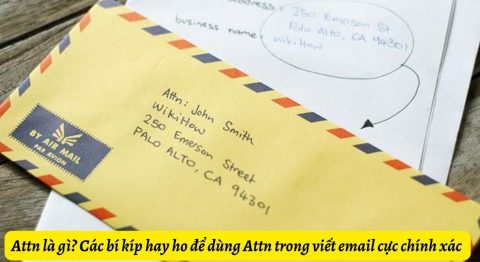 address: 250 Emerson St
Palo Alto, CA 94301
business name: WikiHow
Attn: John Smith
WikiHow
250 Emerson Street
PALO ALTO, CA 94301
BY AIR MAIL
PAR AVION
Attn là gì? Các bí kíp hay ho để dùng Attn trong viết email cực chính xác